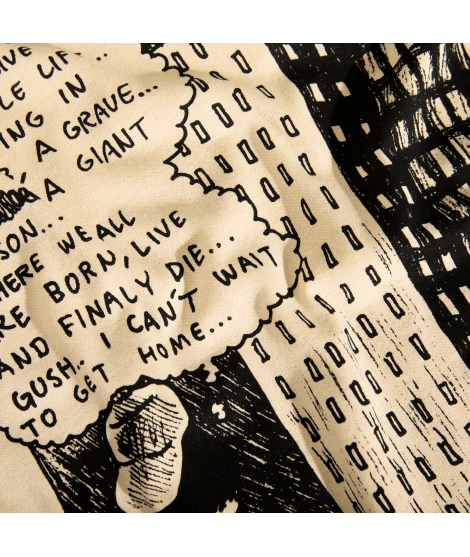 LE LIF...
ING IN...
A GRAVE...
A GIANT
SON...
HERE WE ALL
RE BORN, LIVE
AND FINALY DIE...
GUSH.. I CAN'T WAIT
TO GET HOME...